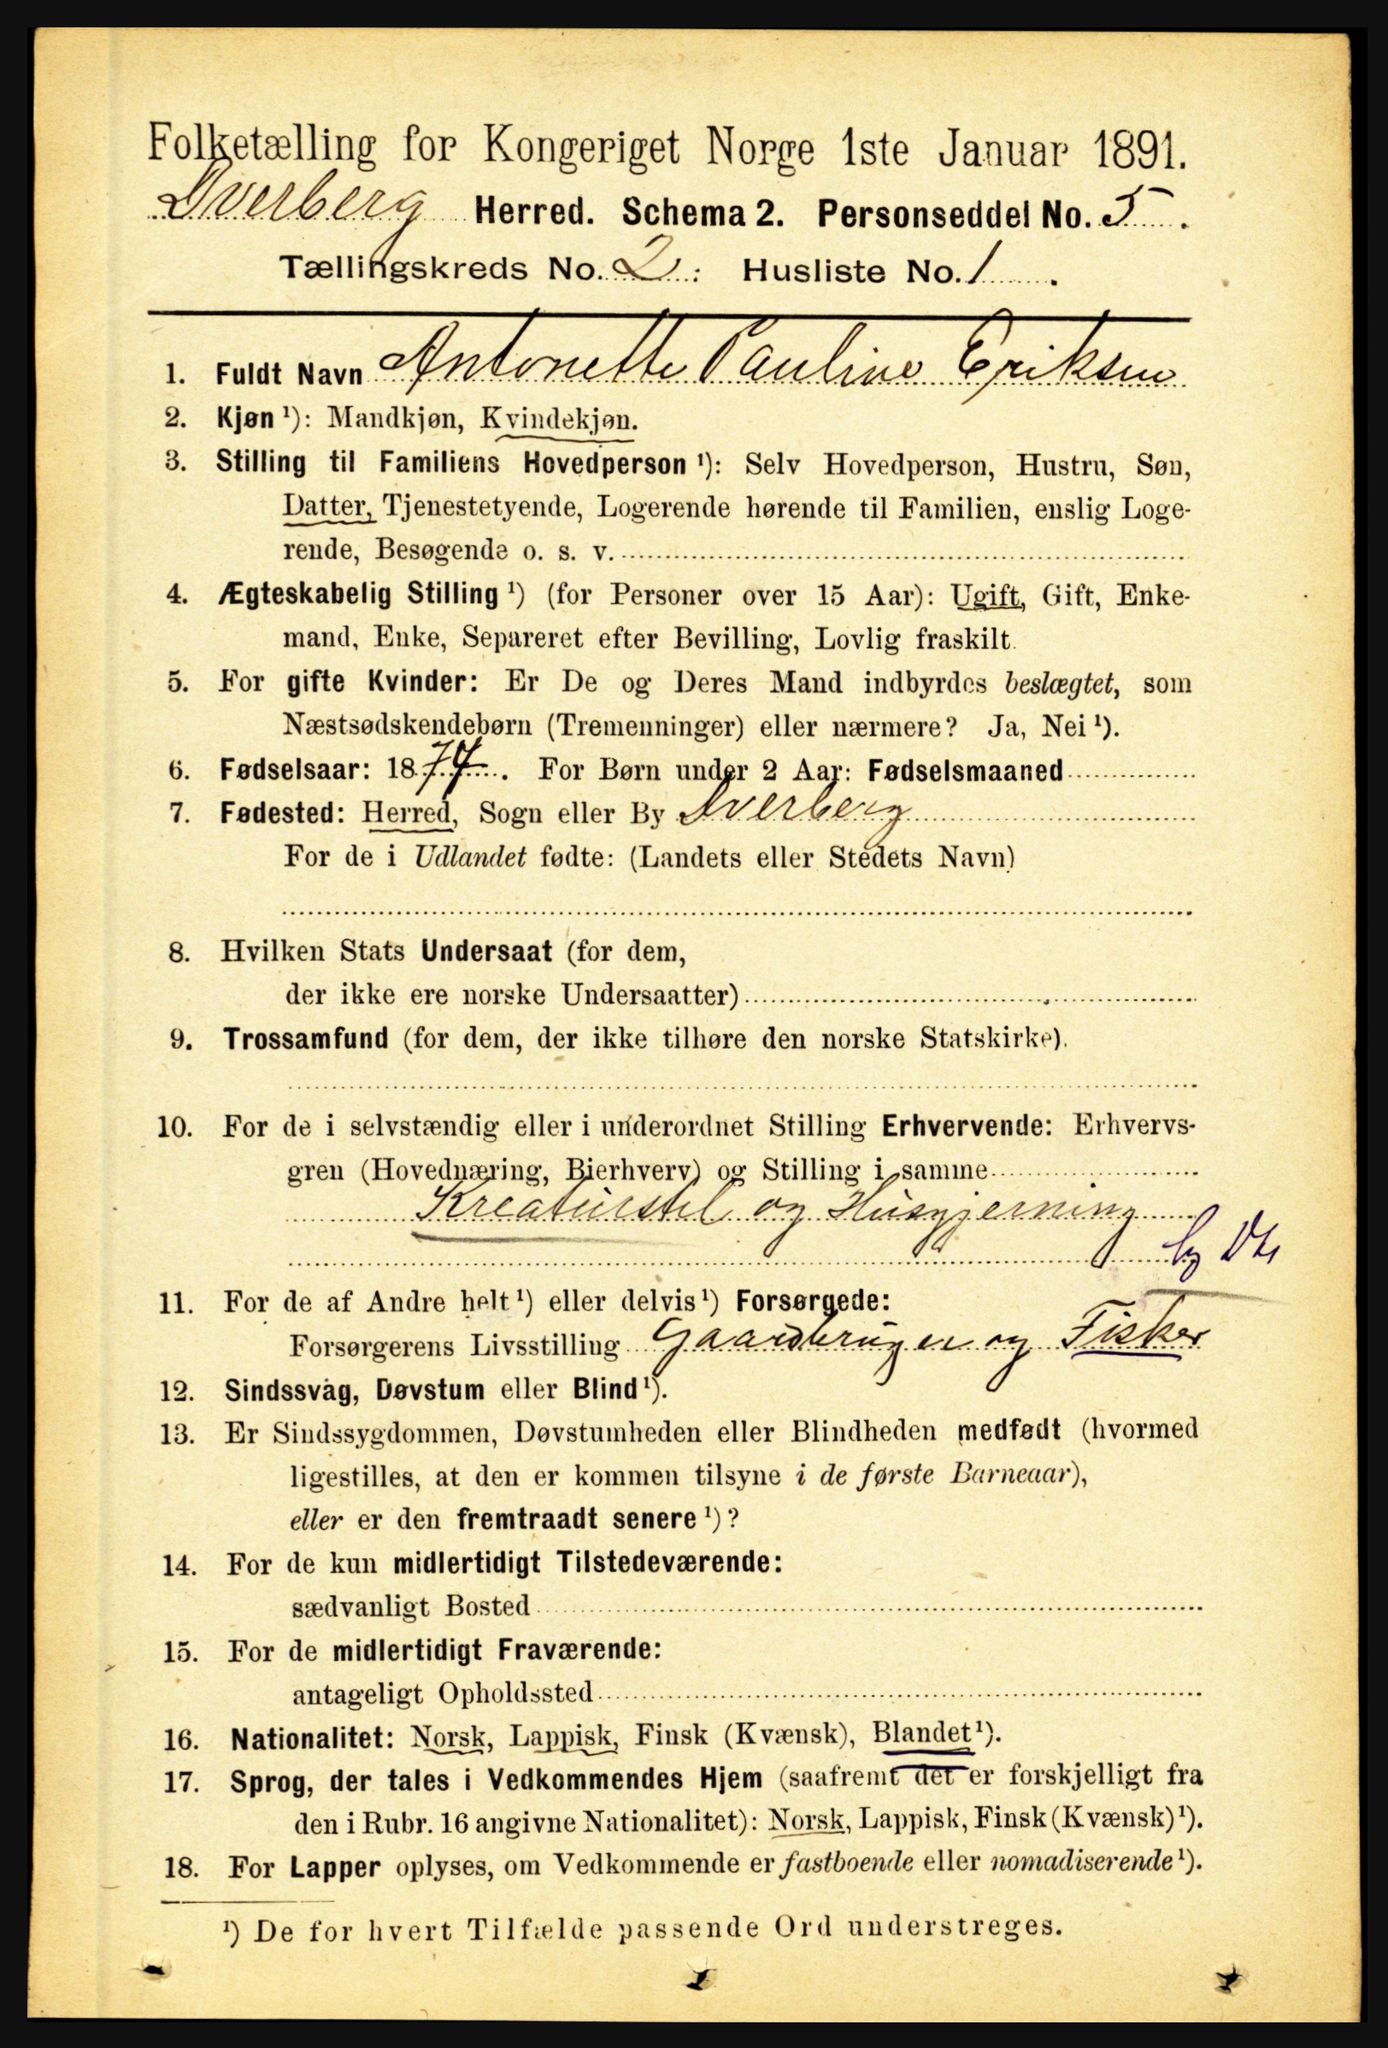 Folketælling for Kongeriget Norge 1ste Januar 1891.
Dverberg Herred. Schema 2. Personseddel No. 5.
Tællingskreds No. 2. Husliste No. 1.
1. Fuldt Navn Antonette Pauline Eriksen
2. Kjøn ¹): Mandkjøn, Kvindekjøn.
3. Stilling til Familiens Hovedperson ¹): Selv Hovedperson, Hustru, Søn,
Datter, Tjenestetyende, Logerende hørende til Familien, enslig Loge-
rende, Besøgende o. s. v.
4. Ægteskabelig Stilling ¹) (for Personer over 15 Aar): Ugift, Gift, Enke-
mand, Enke, Separeret efter Bevilling, Lovlig fraskilt.
5. For gifte Kvinder: Er De og Deres Mand indbyrdes beslægtet, som
Næstsødskendebørn (Tremenninger) eller nærmere? Ja, Nei ¹).
6. Fødselsaar: 1874. For Børn under 2 Aar: Fødselsmaaned
7. Fødested: Herred, Sogn eller By Dverberg
For de i Udlandet fødte: (Landets eller Stedets Navn)
8. Hvilken Stats Undersaat (for dem,
der ikke ere norske Undersaatter)
9. Trossamfund (for dem, der ikke tilhøre den norske Statskirke).
10. For de i selvstændig eller i underordnet Stilling Erhvervende: Erhvervs-
gren (Hovednæring, Bierhverv) og Stilling i samme
Kreaturstel og Husgjerning
11. For de af Andre helt ¹) eller delvis ¹) Forsørgede:
Forsørgerens Livsstilling Gaardbruger og Fisker
12. Sindssvag, Døvstum eller Blind ¹).
13. Er Sindssygdommen, Døvstumheden eller Blindheden medfødt (hvormed
ligestilles, at den er kommen tilsyne i de første Barneaar),
eller er den fremtraadt senere ¹)?
14. For de kun midlertidigt Tilstedeværende:
sædvanligt Bosted
15. For de midlertidigt Fraværende:
antageligt Opholdssted
16. Nationalitet: Norsk, Lappisk, Finsk (Kvænsk), Blandet ¹).
17. Sprog, der tales i Vedkommendes Hjem (saafremt det er forskjelligt fra
den i Rubr. 16 angivne Nationalitet): Norsk, Lappisk, Finsk (Kvænsk) ¹).
18. For Lapper oplyses, om Vedkommende er fastboende eller nomadiserende ¹).
¹) De for hvert Tilfælde passende Ord understreges.